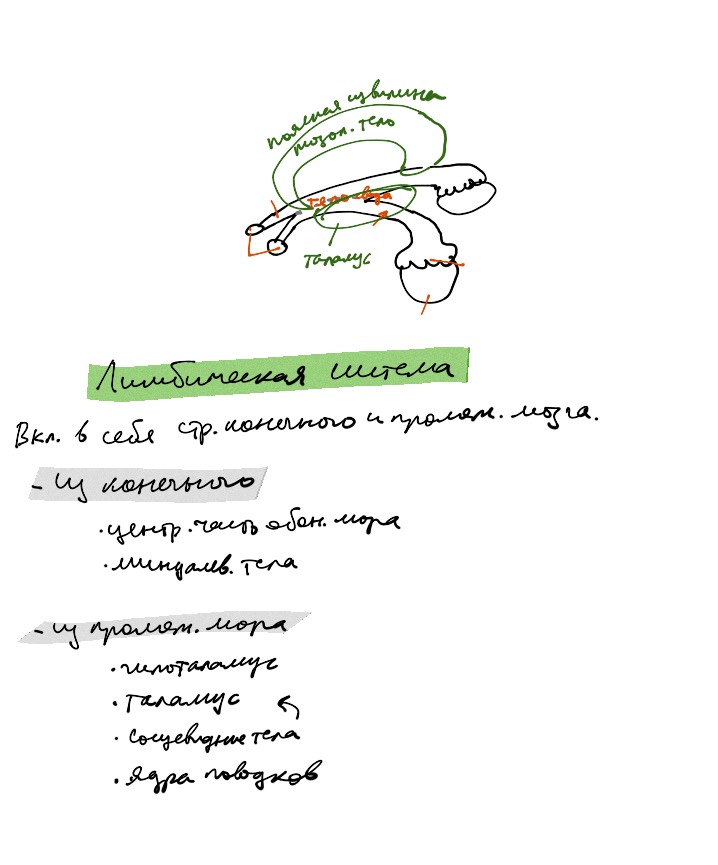 поясная извилина
мозол. тело
тело свода
таламус
Лимбическая система
Вкл. в себя стр. конечного и промеж. мозга.
- Из конечного
· центр. часть обон. мозга
· миндалев. тела
- Из промеж. мозга
· гипоталамус
· таламус
· сосцевидные тела
· ядра поводков